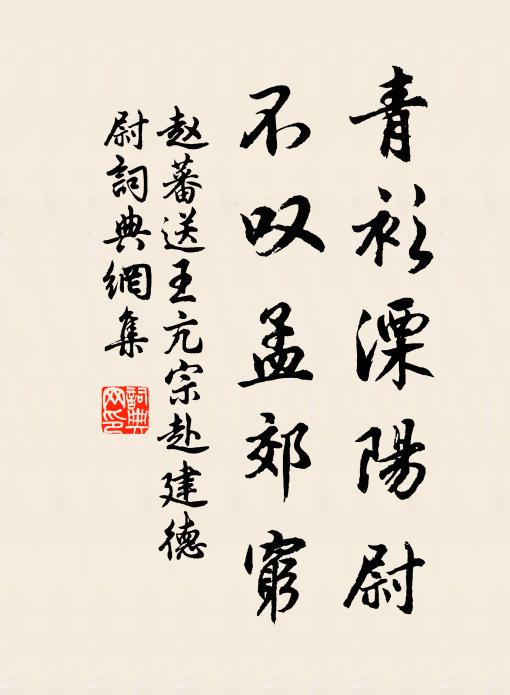 青衫溧陽尉
不叹孟郊窮
赵蕃送王亢宗赴建德
尉詞典網集
詞典
网印